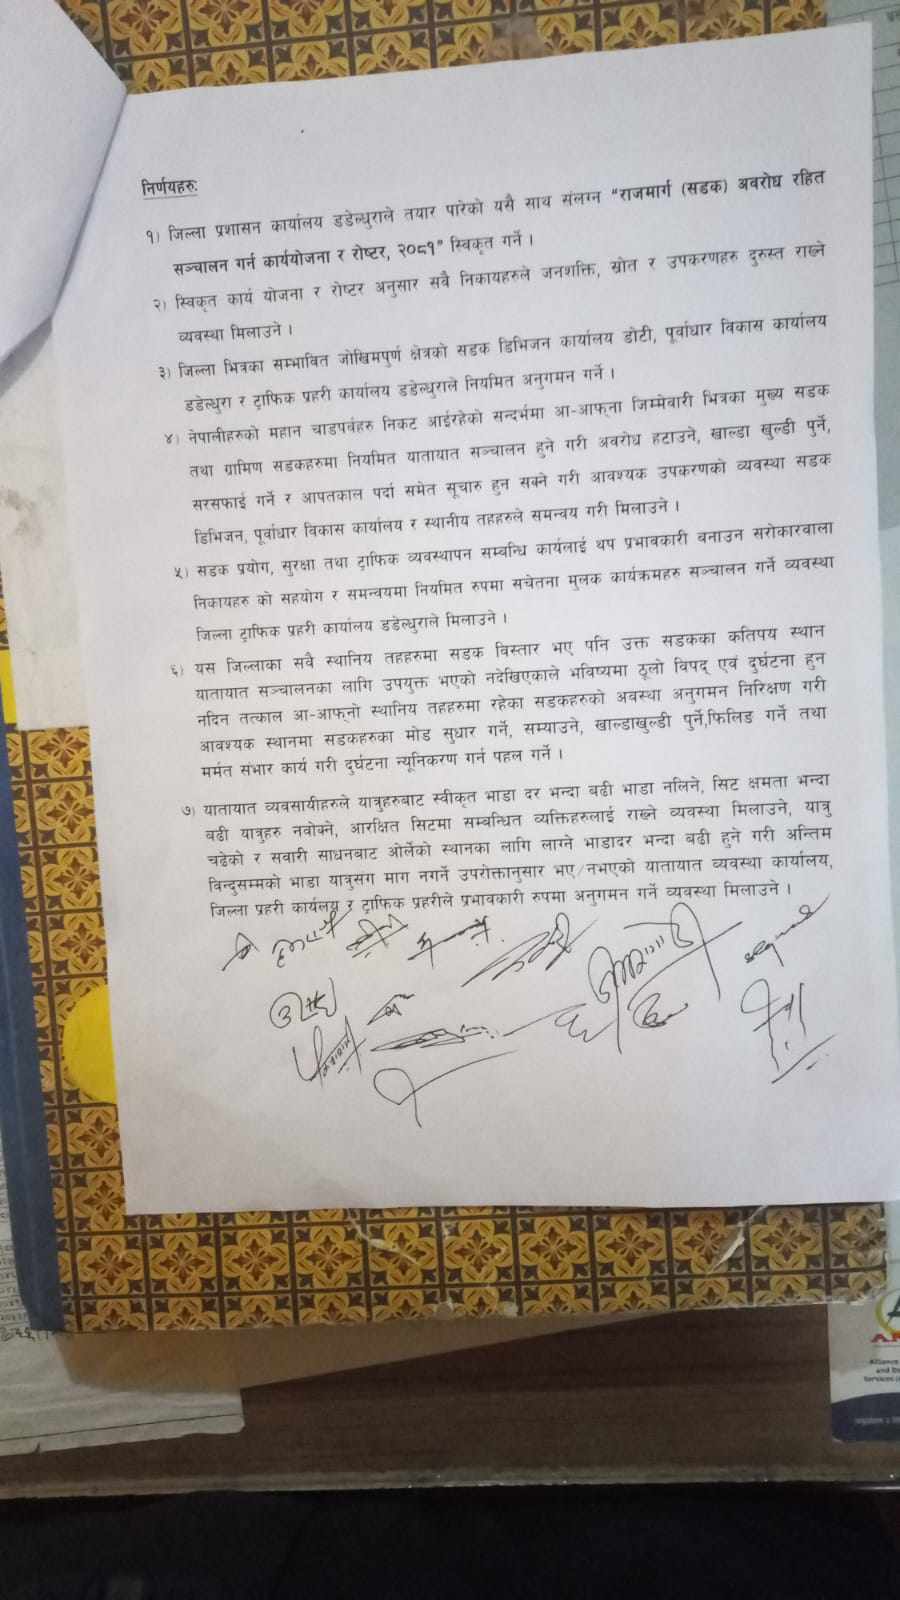 निर्णयहरु:
१) जिल्ला प्रशासन कार्यालय डडेल्धुराले तयार पारेको यसै साथ संलग्न "राजमार्ग (सडक) अवरोध रहित
सञ्चालन गर्न कार्ययोजना र रोष्टर, २०८१" स्विकृत गर्ने ।
२) स्विकृत कार्य योजना र रोष्टर अनुसार सवै निकायहरुले जनशक्ति, स्रोत र उपकरणहरु दुरुस्त राख्ने
व्यवस्था मिलाउने ।
३) जिल्ला भित्रका सम्भावित जोखिमपुर्ण क्षेत्रको सडक डिभिजन कार्यालय डोटी, पूर्वाधार विकास कार्यालय
डडेल्धुरा र ट्राफिक प्रहरी कार्यालय डडेल्धुराले नियमित अनुगमन गर्ने ।
४) नेपालीहरुको महान चाडपर्वहरु निकट आईरहेको सन्दर्भमा आ-आफ्ना जिम्मेवारी भित्रका मुख्य सडक
तथा ग्रामिण सडकहरुमा नियमित यातायात सञ्चालन हुने गरी अवरोध हटाउने, खाल्डा खुल्डी पुर्ने,
सरसफाई गर्ने र आपतकाल पर्दा समेत सूचारु हुन सक्ने गरी आवश्यक उपकरणको व्यवस्था सडक
डिभिजन, पूर्वाधार विकास कार्यालय र स्थानीय तहहरुले समन्वय गरी मिलाउने ।
५) सडक प्रयोग, सुरक्षा तथा ट्राफिक व्यवस्थापन सम्बन्धि कार्यलाई थप प्रभावकारी बनाउन सरोकारवाला
निकायहरु को सहयोग र समन्वयमा नियमित रुपमा सचेतना मुलक कार्यक्रमहरु सञ्चालन गर्ने व्यवस्था
जिल्ला ट्राफिक प्रहरी कार्यालय डडेल्धुराले मिलाउने ।
६) यस जिल्लाका सवै स्थानिय तहहरुमा सडक विस्तार भए पनि उक्त सडकका कतिपय स्थान
यातायात सञ्चालनका लागि उपयुक्त भएको नदेखिएकाले भविष्यमा ठूलो विपद् एवं दुर्घटना हुन
नदिन तत्काल आ-आफ्नो स्थानिय तहहरुमा रहेका सडकहरुको अवस्था अनुगमन निरिक्षण गरी
आवश्यक स्थानमा सडकहरुका मोड सुधार गर्ने, सम्याउने, खाल्डाखुल्डी पुर्ने,फिलिङ गर्ने तथा
मर्मत संभार कार्य गरी दुर्घटना न्यूनिकरण गर्न पहल गर्ने ।
७) यातायात व्यवसायीहरुले यात्रुहरुबाट स्वीकृत भाडा दर भन्दा बढी भाडा नलिने, सिट क्षमता भन्दा
बढी यात्रुहरु नवोक्ने, आरक्षित सिटमा सम्बन्धित व्यक्तिहरुलाई राख्ने व्यवस्था मिलाउने, यात्रु
चढेको र सवारी साधनबाट ओर्लेको स्थानका लागि लाग्ने भाडादर भन्दा बढी हुने गरी अन्तिम
विन्दुसम्मको भाडा यात्रुसंग माग नगर्ने उपरोक्तानुसार भए/नभएको यातायात व्यवस्था कार्यालय,
जिल्ला प्रहरी कार्यलय र ट्राफिक प्रहरीले प्रभावकारी रुपमा अनुगमन गर्ने व्यवस्था मिलाउने ।